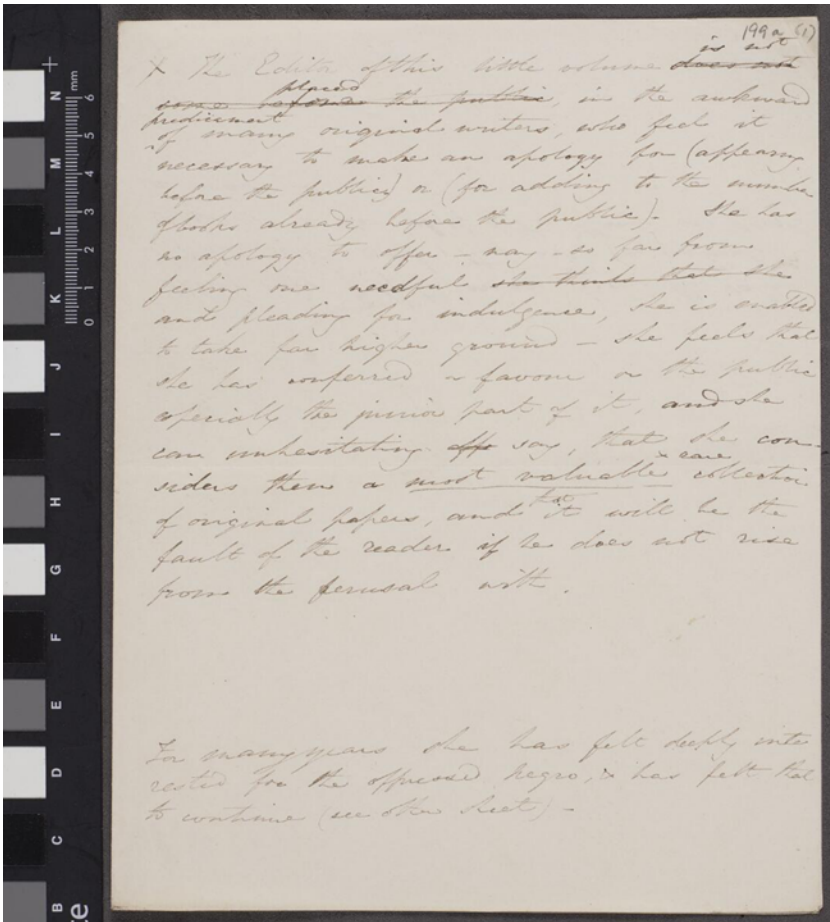 199a (1)
is not
X The Editor of this little volume does not
placed
come before the public, in the awkward
predicament
of many original writers, who feel it
necessary to make an apology for (appearing
before the public) or (for adding to the number
of books already before the public). She has
no apology to offer – nay – so far from
feeling one needful she thinks that she
and pleading for indulgence, she is enabled
to take far higher ground – she feels that
she has conferred a favour on the public
especially the junior part of it, and she
can unhesitating off say, that she con-
siders them a most valuable x rare collection
of original papers, and that it will be the
fault of the reader if he does not rise
from the perusal with.
For many years she has felt deeply inte
rested for the oppressed negro, & has felt that
to continue (see other sheet) –
mm
6
5
4
3
2
1
0
N
M
L
K
J
I
H
G
F
E
D
C
B
te